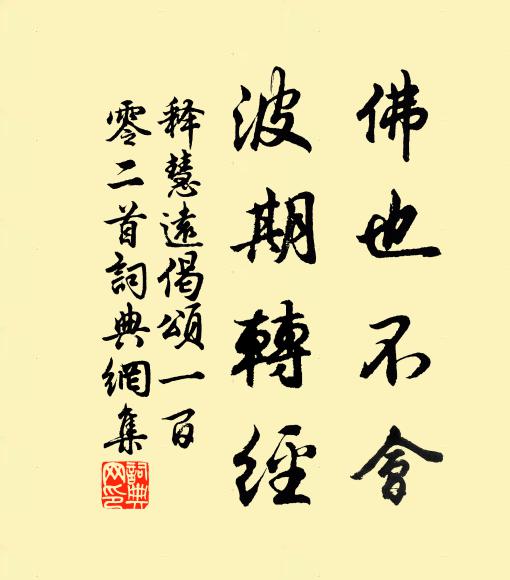 佛也不會
波期轉經
釋慧遠偈頌一百
零二首詞典網集
詞典網印